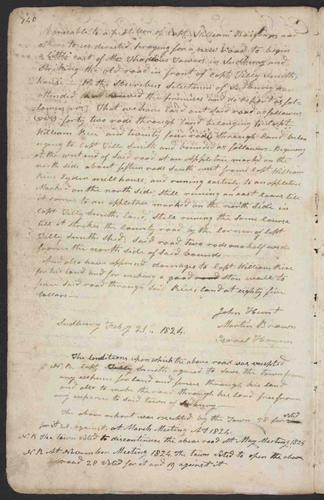 240
Agreeable to a petition of Capt William Rice and
others praying for a new road to begin
a little east of Mr Thaddeus Tower's in Sudbury and
striking the old road in front of Capt Willy Smith
house. We the Subscribers Selectmen of Sudbury have
attended the premises and do report as fol
lows viz. That we have laid out said road as follows
viz forty two rods through land belonging to Capt
William Rice and twenty four rods through land belon
ging to Capt Willy Smith and bounded as follows. Begining
at the west end of said road at an appletree marked on the
north side about fifteen rods south west from Capt William
Rice's dwelling house, and running easterly to an appletree
Marked on the north side still running an east course till
it comes to an appletree marked on the north side in
Capt Willy Smiths land, still running the same course
till it strikes the County road by the corner of Capt
Willy Smith Shed, said road two rods and half wide
from the north side of said bounds.
And also have apprized damages to Capt William Rice
for his land and for making a good stone wall to
fence said road through said Rices land at eighty five
dollars
John Hunt
Sudbury Feby 21st 1824. Martin Brown
Israel
The conditions upon which the above road was accepted
N.B. Capt Smith agreed to save the town from
any expense for land and fences through his land
and also to make the road through his land free from
any expense to said town of Sudbury
The above report was accepted by the Town 78 for voted
for it 21 against. at March Meeting Ad 1824.
N.B. The Town voted to discontinue the above road at May Meeting 1824
N.B. At November Meeting 1824 the Town voted to open the above
road 28 voted for it and 19 against it.